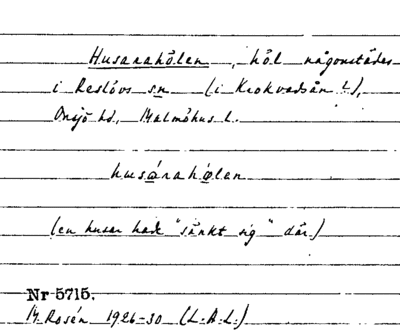 Husarahålen, hål någonstädes
i Reslövs sn (i Krokvadsån ?),
Onsjö hd, Malmöhus l.
husárahọlen
(en husar hade "sänkt sig" där.)
Nr 5715.
M. Rosén 1926-30 (L.A.L.)